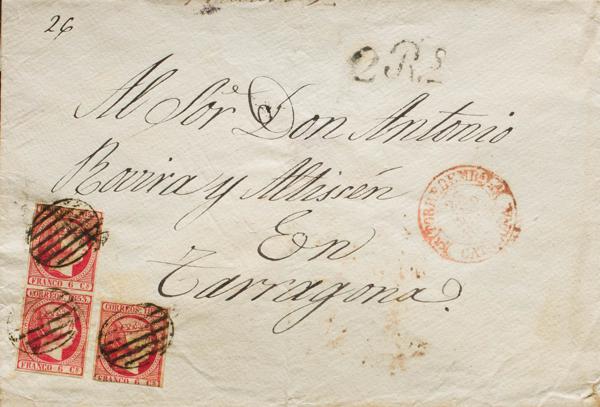 26
2 R.s
Al Sor. Don Antonio
Rovira y Altissén
En
Tarragona.
TORREDEMBARRA
FRANCO 6 Cs
CORREOS 1853
FRANCO 6 Cs
CORREOS
FRANCO 6 Cs